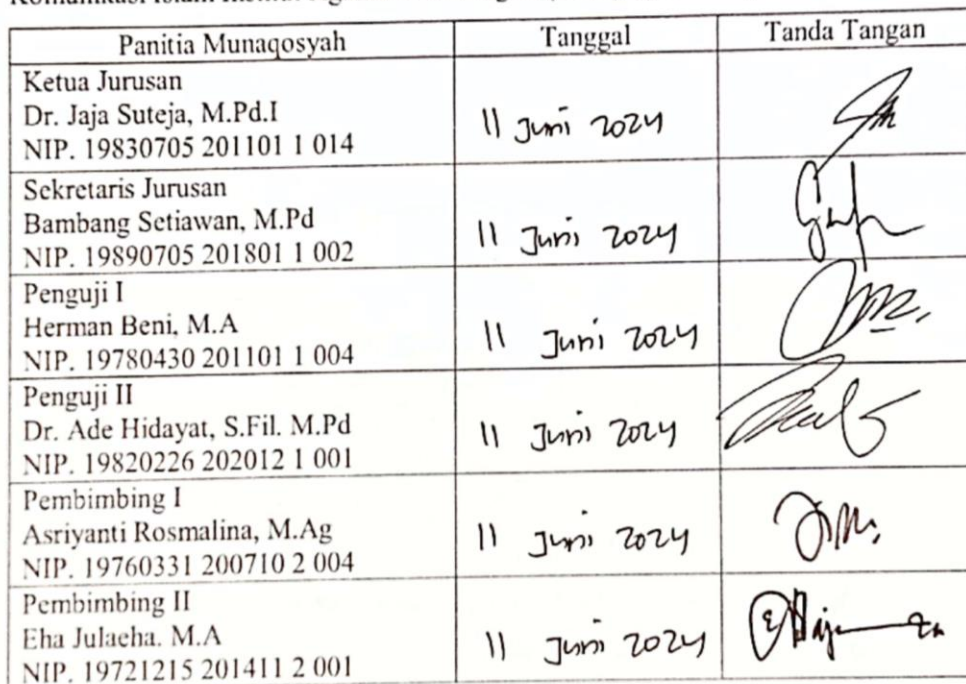 Panitia Munaqosyah Tanggal Tanda Tangan
Ketua Jurusan
Dr. Jaja Suteja, M.Pd.I
NIP. 19830705 201101 1 014
11 Juni 2024
Sekretaris Jurusan
Bambang Setiawan, M.Pd
NIP. 19890705 201801 1 002
11 Juni 2024
Penguji I
Herman Beni, M.A
NIP. 19780430 201101 1 004
11 Juni 2024
Penguji II
Dr. Ade Hidayat, S.Fil. M.Pd
NIP. 19820226 202012 1 001
11 Juni 2024
Pembimbing I
Asriyanti Rosmalina, M.Ag
NIP. 19760331 200710 2 004
11 Juni 2024
Pembimbing II
Eha Julaeha. M.A
NIP. 19721215 201411 2 001
11 Juni 2024